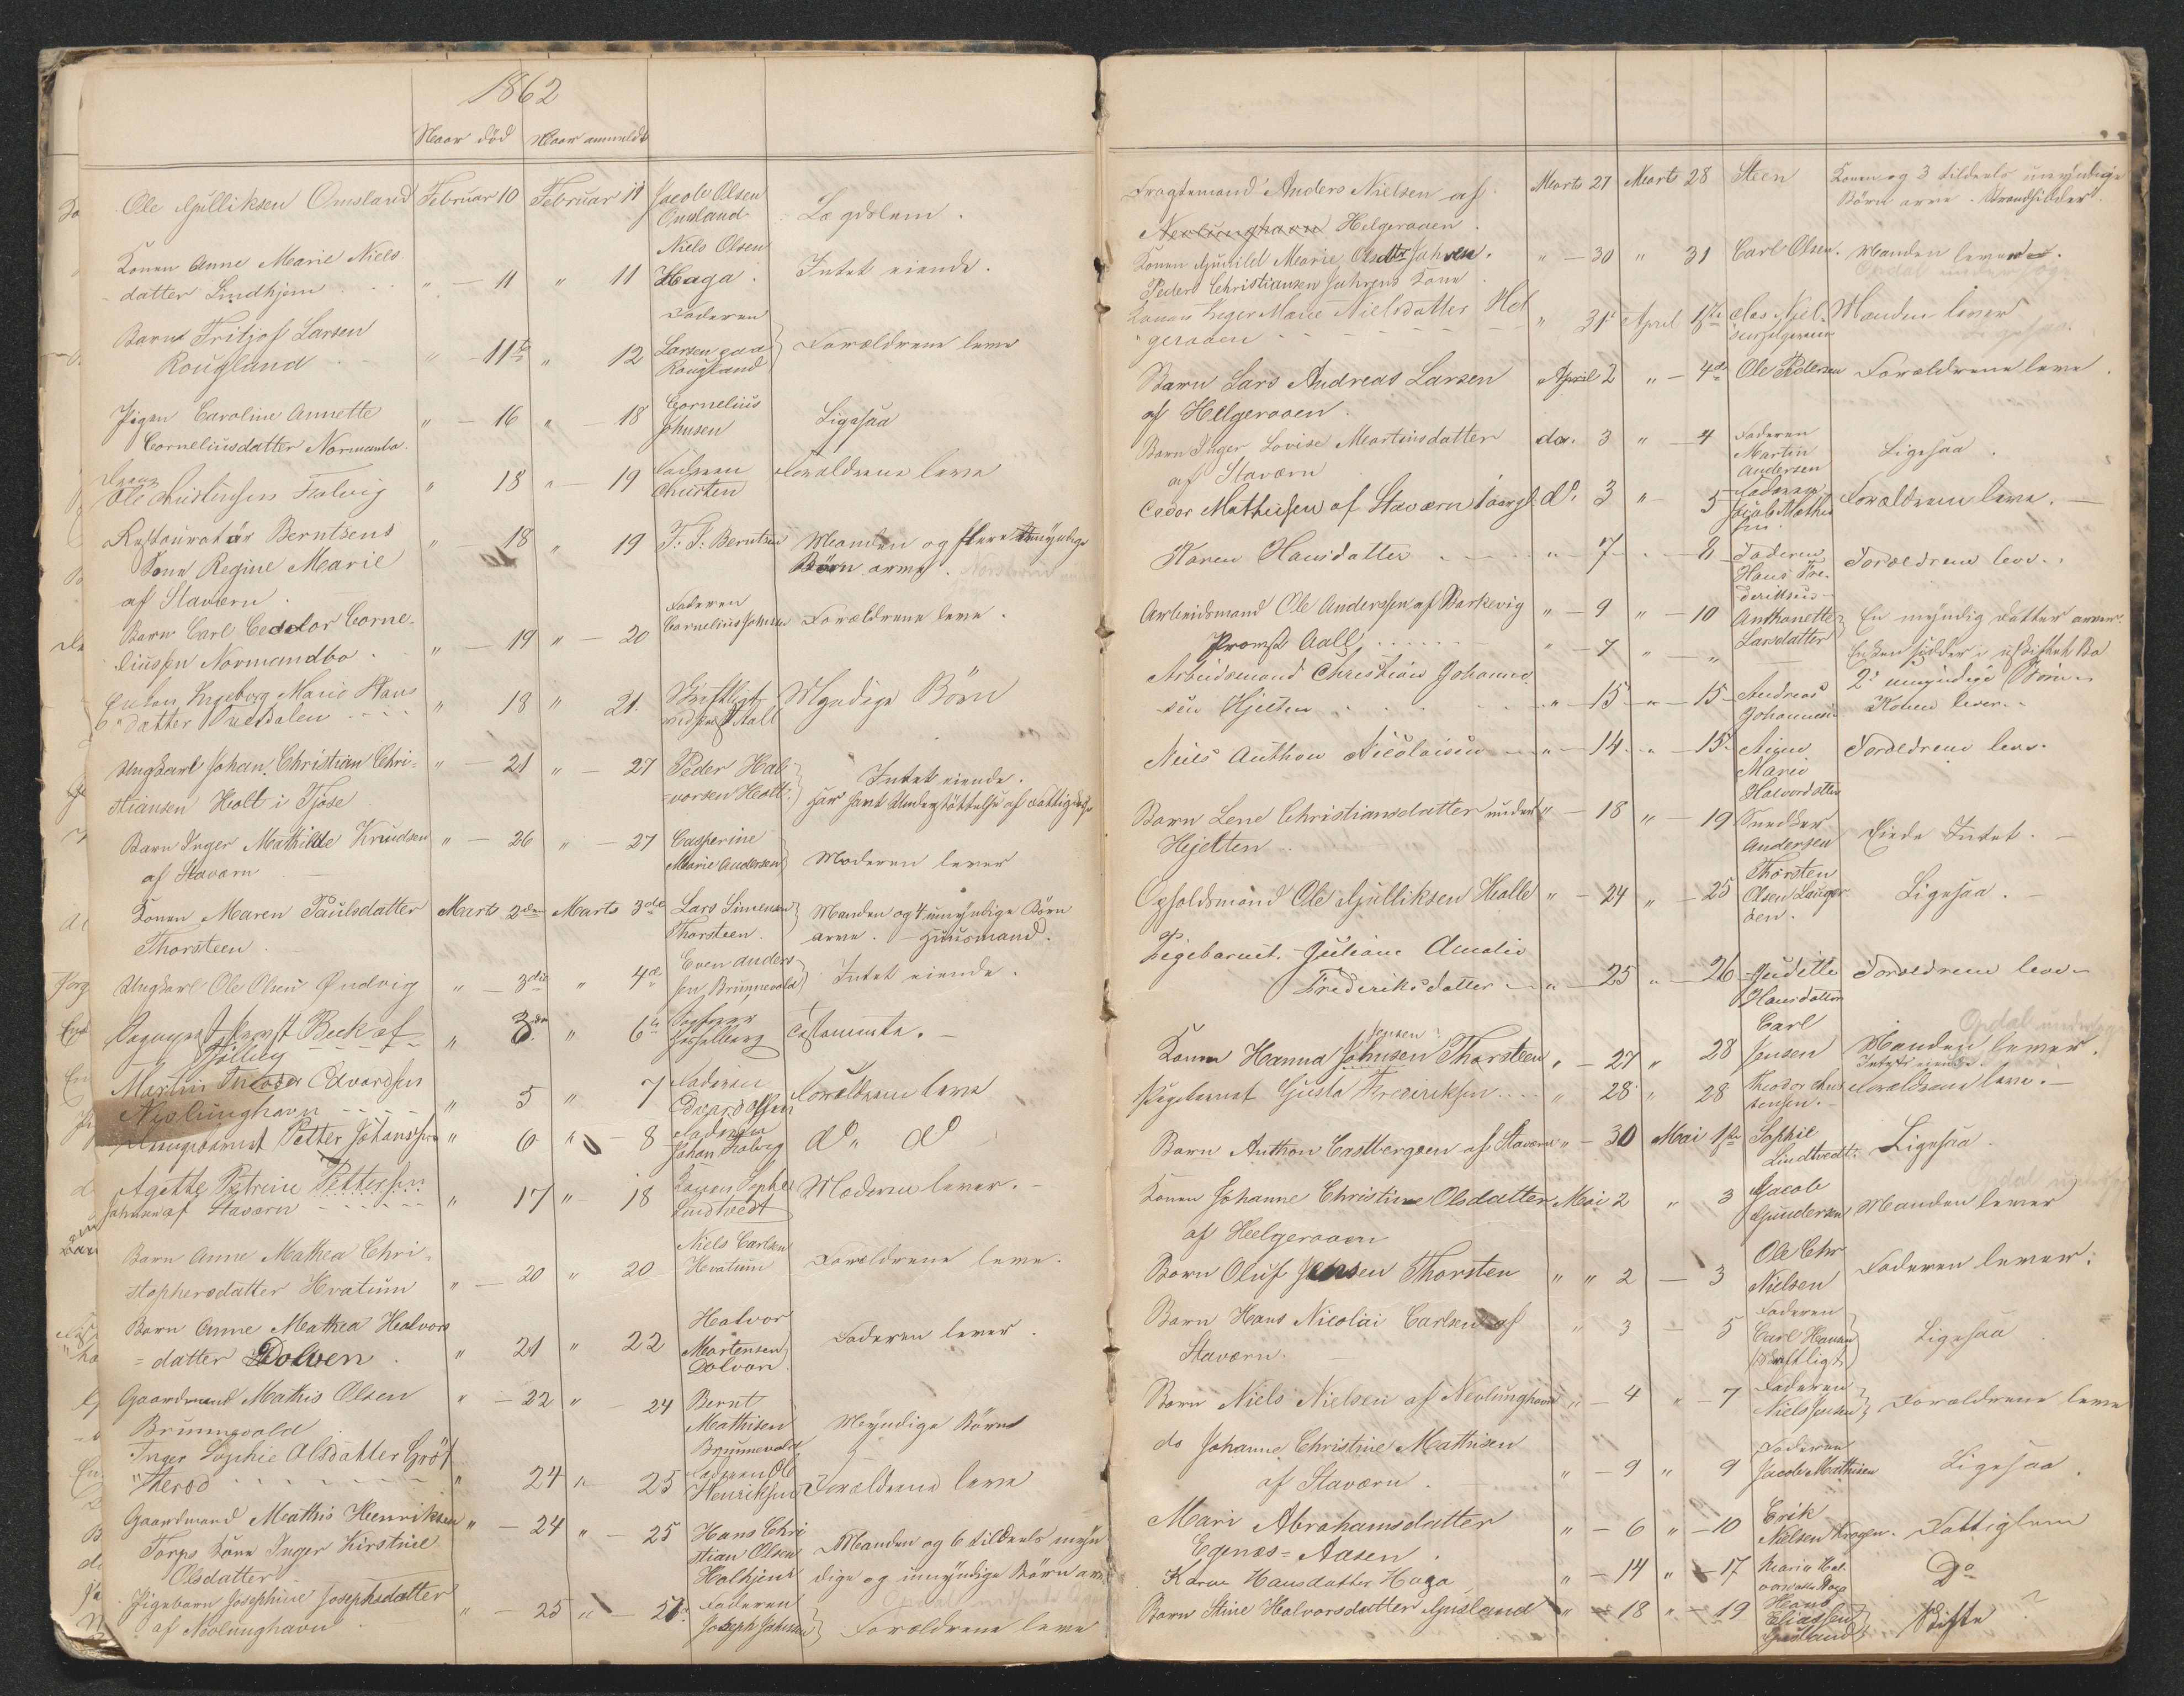 1862
Naar död Naar anmeldt
Ole Gulliksen Omsland Februar 10 Februar 11 Jacob Olsen Omsland Lægdslem.
Konen Anne Marie Niels
datter Lindhjem " - 11 " 11 Niels Olsen Haga. Intet eiende.
Barn Fritjof Larsen
Rougland " - 11te " 12 Faderen Larsen Rougland Forældrene leve
Pigen Caroline Annette
Corneliusdatter Normanbo. " - 16 " - 18 Cornelius Johnsen Ligesaa
Ole Christensen " 18 " - 19 Faderen Christen Forældrene leve
Restauratör Berntsens
Kone Regine Marie
af Stavern. " 18 " 19 Berntsen Manden og flere umyndige Börn arve.
Barn Carl Corne-
liussen Normandbo. " - 19 " - 20 Faderen Cornelius Johnsen Forældrene leve.
Enken Ingeborg Marie Hans
datter " 18 " 21. Skriftligt Myndige Börn
Ungkarl Johan Christian Chri-
stiansen Holt i Tjöse " - 21 " - 27 Peder Hal-
vorsen Holt. Intet eiende.
har havt Understöttelse af
Barn Inger Mathilde Knudsen
af Staværn " - 26 " - 27 Casperine Marie Andersen Moderen lever
Konen Maren Paulsdatter
Thorsteen. Marts 2den Marts 3de Lars Simensen Thorsteen. Manden og 4 umyndige Börn
arve. - Huusmand.
Ungkarl Ole Olsen Øndvig " - 3die " 4de Even Anders
sen Brunnevold Intet eiende.
Beck af
Tjölling " 3die " 6te Testamente.
Martin Theodor Edvardsen
Nevlunghavn " 5 " 7 Faderen Edvard Olsen Forældrene leve
Drengebarnet Petter Johansen " 6 " - 8 Faderen Johan do do
Agethe Petrine Pettersen
af Staværn " 17 " - 18 Lindtvedt Moderen lever. -
Barn Anne Mathea Chri-
stophersdatter Hvatum " - 20 " 20 Niels Carlsen Hvatum Forældrene leve.
Barn Anne Mathea Halvors
= datter Dolven. " 21 " 22 Halvor Mortensen Dolven. Faderen lever.
Gaardmand Mathis Olsen
Brunnevold " - 22 " - 24 Bernt Mathisen Brunnevold Myndige Börn
Inger Sophie Olsdatter Gröt
therød " 24 " - 25 Faderen Ole Henriksen Forældrene leve
Gaardmand Mathis Henriksen
Torps Kone Inger Kirstine
Olsdatter " - 24 " - 25 Hans Chri
stian Olsen Manden og 6 tildeels myn
dige og umyndige Börn arve
Pigebarn Josephine Josephsdatter
af Nevlunghavn " - 25 " - Faderen Joseph Johnsen Forældrene leve
Fragtemand Anders Nielsen af
Nevlunghavn Helgeraaen. Marts 27 Marts 28 Steen Konen og 3 tildeels umyndige
Börn arve. Strandsidder.
Konen Gunild Marie Olsdtr
Peder Christiansen Kone " - 30 " 31 Carl Olsen. Manden lever.
Konen Inger Marie Nielsdatter Hel
geraaen " 31 April 1ste Manden lever
Barn Lars Andreas Larsen
af Helgeraaen. April 2 " - 4de Ole Pedersen Forældrene leve.
Barn Inger Lovise Martinsdatter
af Staværn do. 3 " - 4 Faderen Martin Andersen Ligesaa.
Mathisen af Staværn do. 3 " - 5 Faderen Jacob Mathisen Forældrene leve. -
Karen Hansdatter " - 7 - 8 Faderen Hans Fre-
deriksen Forældrene leve.
Arbeidsmand Ole Andersen af Barkevig " - 9 " - 10 Anthonette Larsdatter En myndig datter arver.
Provst Aall " - 7 " - " Enken sidder i uskiftet Bo
Arbeidsmand Christian Johanne-
sen Hjelten " - 15 " - 15 Andreas Johannesen 2 umyndige Börn
Konen lever.
Niels Anthon Nicolaisen " - 14 " - 15 Marie Halvordatter Forældrene leve.
Barn Lene Christiansdatter under
Hjelten. " - 18 " - 19 Snedker Andersen Eiede Intet. -
Ole Gulliksen Halle " - 24 " - 25 Thorsten Olsen Ligesaa. -
Pigebarnet Juliane Amalie
Frederiksdatter " - 25 " - 26 Judithe Hansdatter Forældrene leve
Konen Hanna Johnsen Thorsteen " - 27 " 28 Carl Jensen Manden lever.
Intet eiende.
Pigebarnet Gusta Frederiksen " 28 " 28 Theodor Chris
tensen. Forældrene leve. -
Barn Anthon Castbergsen af Stavern " - 30 Mai 1ste Sophie Lindtvedt. Ligesaa.
Konen Johanne Christine Olsdatter
af Helgeraaen Mai 2 " 3 Jacob Gundersen Manden lever
Barn Oluf Jensen Thorsten " " 2 - 3 Ole Chr Nielsen Faderen lever.
Barn Hans Nicolai Carlsen af
Staværn. " 3 - 5 Faderen Carl Hansen (Skriftligt) Ligesaa
Barn Niels Nielsen af Nevlunghavn " - 4 " - 7 Faderen Niels Jensen Forældrene leve
do Johanne Christine Mathisen
af Staværn. " - 9 " 9 Faderen Jacob Mathisen Ligesaa.
Mari Abrahamsdatter
Egenæs-Aasen. " - 6 " - 10 Erik Nielsen Krogen. Fattiglem
Karen Hansdatter Haga " - 14 " - 17 Maria Hal-
vorsdatter Haga Do
Barn Stine Halvorsdatter Gusland " - 18 " - 19 Hans Eliassen Gusland Skifte ?